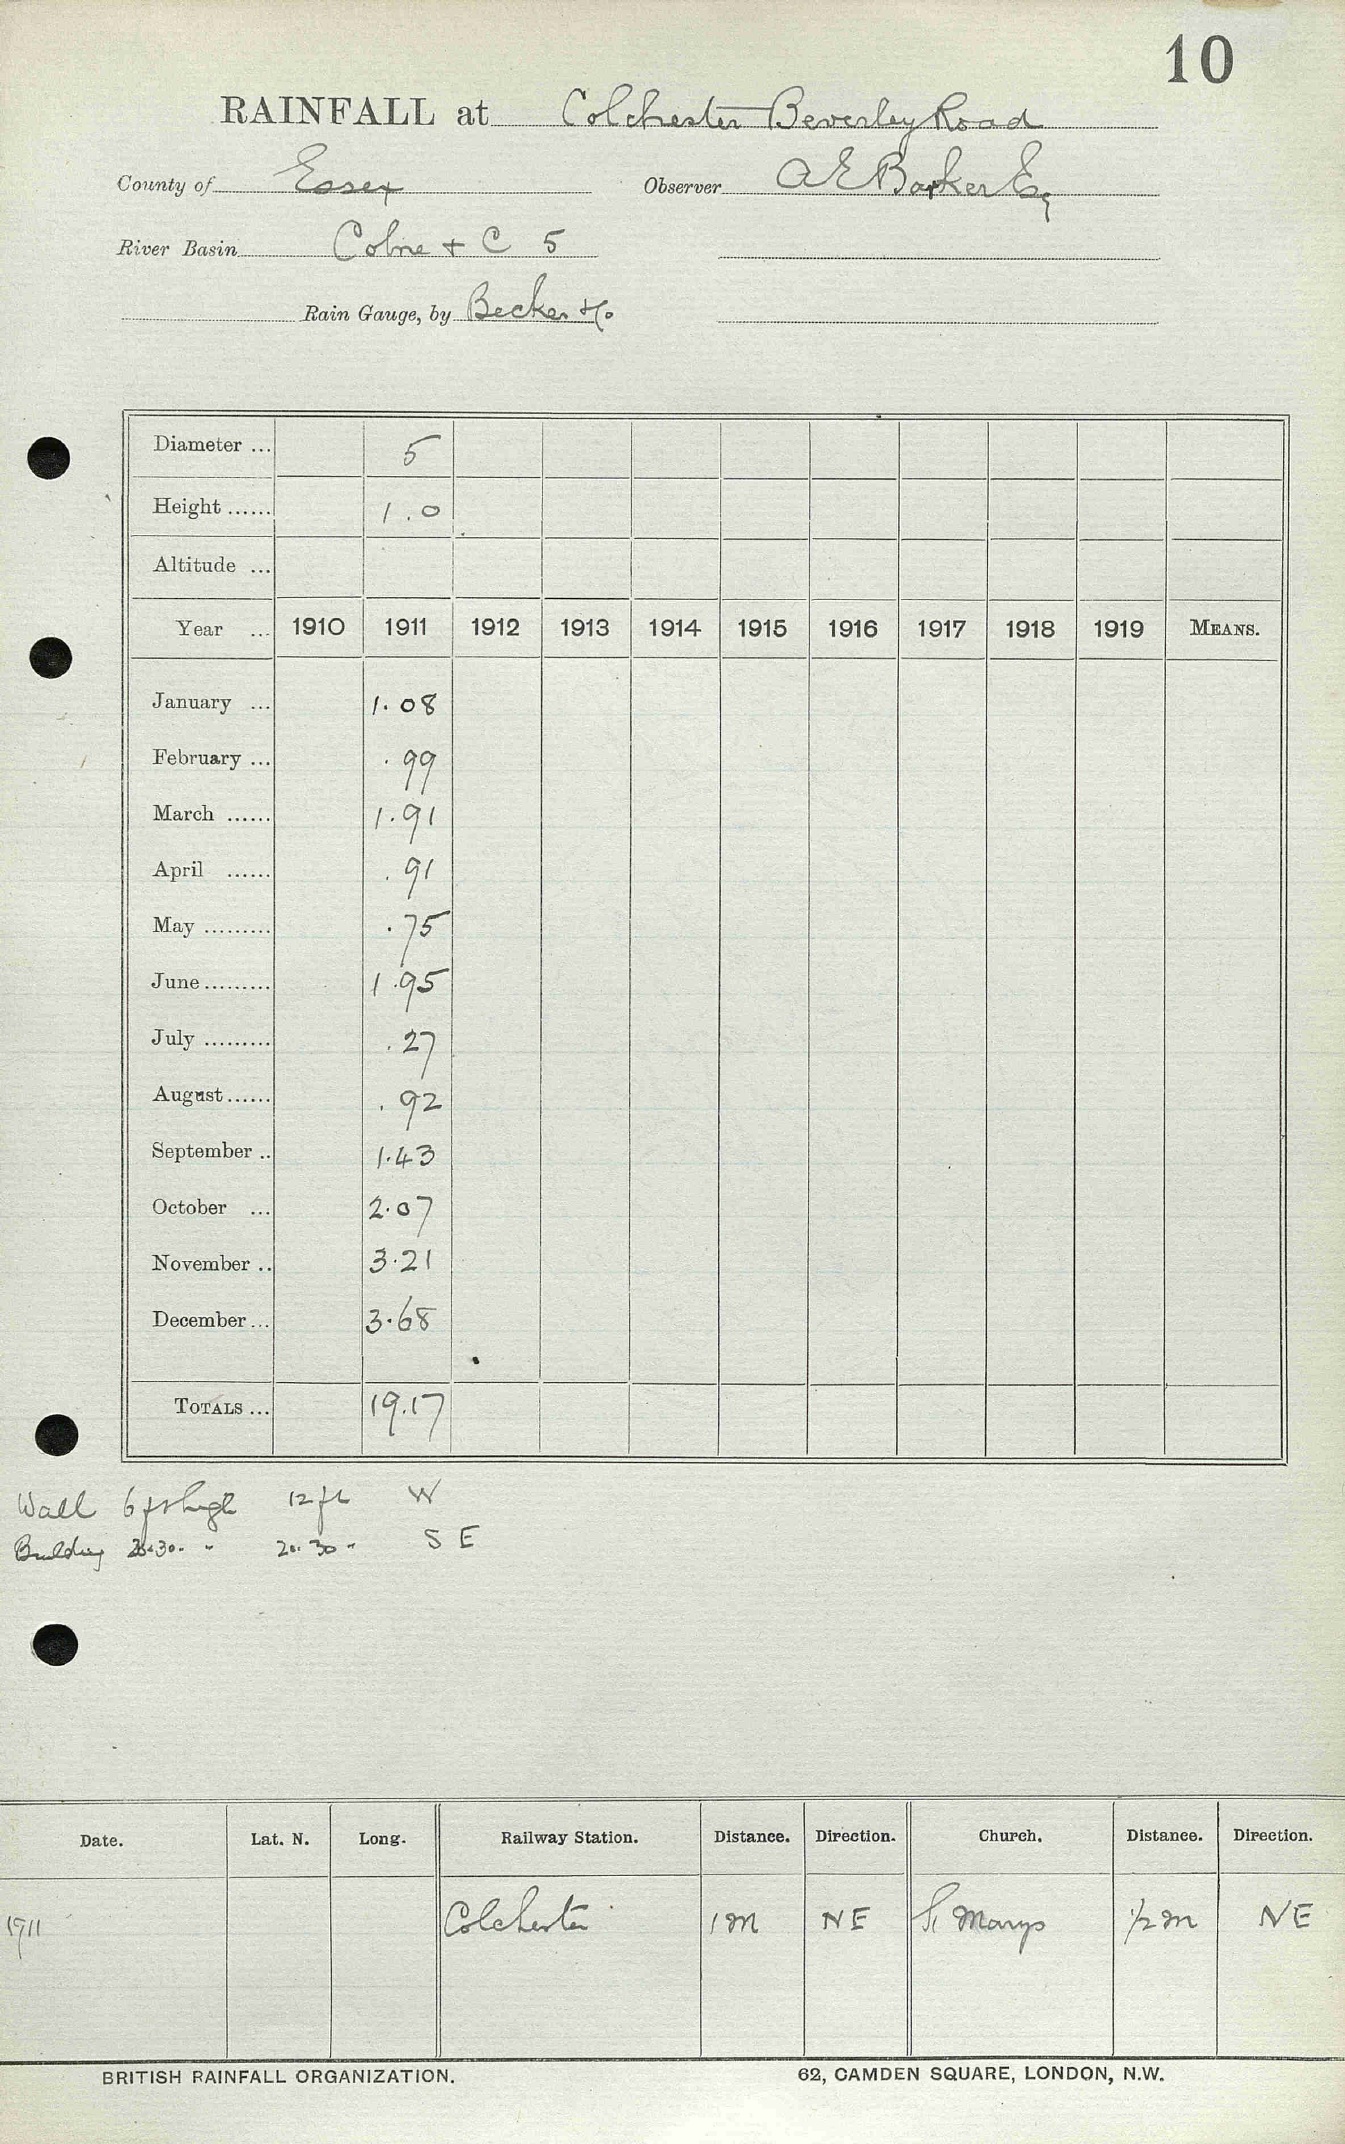 10
RAINFALL at Colchester Beverley Road
County of Essex Observer A E Barker Esq
River Basin Colne + C 5
Rain Gauge, by Becker & Co
Diameter ... 5
Height ...... 1.0
Altitude ...
Year ... 1910 1911 1912 1913 1914 1915 1916 1917 1918 1919 MEANS.
January ... 1.08
February ... .99
March ...... 1.91
April ...... .91
May ......... .75
June ......... 1.95
July ......... .27
August ...... .92
September .. 1.43
October ... 2.07
November .. 3.21
December ... 3.68
TOTALS ... 19.17
Wall 6 ft high 12 ft W
Building 20.30 " 20.30 " S E
Date. Lat. N. Long. Railway Station. Distance. Direction. Church. Distance. Direction.
1911 Colchester 1 m NE St Marys 1/2 m NE
BRITISH RAINFALL ORGANIZATION. 62, CAMDEN SQUARE, LONDON, N.W.